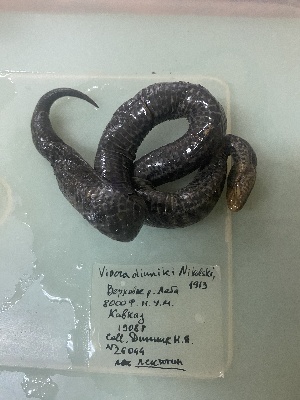 Vipera dinniki Nikolski,
1913
Верховье р. Лаба
8000 Ф. н. у. м.
Кавказ
1908 г
coll. Динник Н. Я.
№26044
лектотип